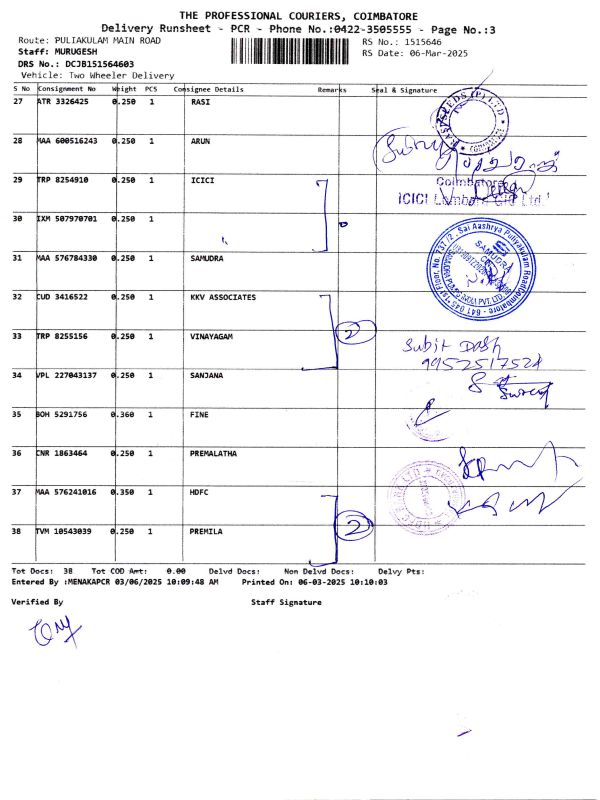 THE PROFESSIONAL COURIERS, COIMBATORE
Delivery Runsheet - PCR - Phone No.:0422-3505555 - Page No.:3
Route: PULIAKULAM MAIN ROAD RS No.: 1515646
Staff: MURUGESH RS Date: 06-Mar-2025
DRS No.: DCJB151564603
Vehicle: Two Wheeler Delivery
S No Consignment No Weight PCS Consignee Details Remarks Seal & Signature
27 ATR 3326425 0.250 1 RASI
28 MAA 600516243 0.250 1 ARUN
29 TRP 8254910 0.250 1 ICICI
Coimbatore
ICICI Lombard
30 IXM 507970701 0.250 1
31 MAA 576784330 0.250 1 SAMUDRA
SAMUDRA
32 CUD 3416522 0.250 1 KKV ASSOCIATES
2
33 TRP 8255156 0.250 1 VINAYAGAM
Subit Dash
9952517524
34 VPL 227043137 0.250 1 SANJANA
35 BOH 5291756 0.360 1 FINE
36 CNR 1863464 0.250 1 PREMALATHA
37 MAA 576241016 0.350 1 HDFC
2
38 TVM 10543039 0.250 1 PREMILA
Tot Docs: 38 Tot COD Amt: 0.00 Delvd Docs: Non Delvd Docs: Delvy Pts:
Entered By :MENAKAPCR 03/06/2025 10:09:48 AM Printed On: 06-03-2025 10:10:03
Verified By Staff Signature